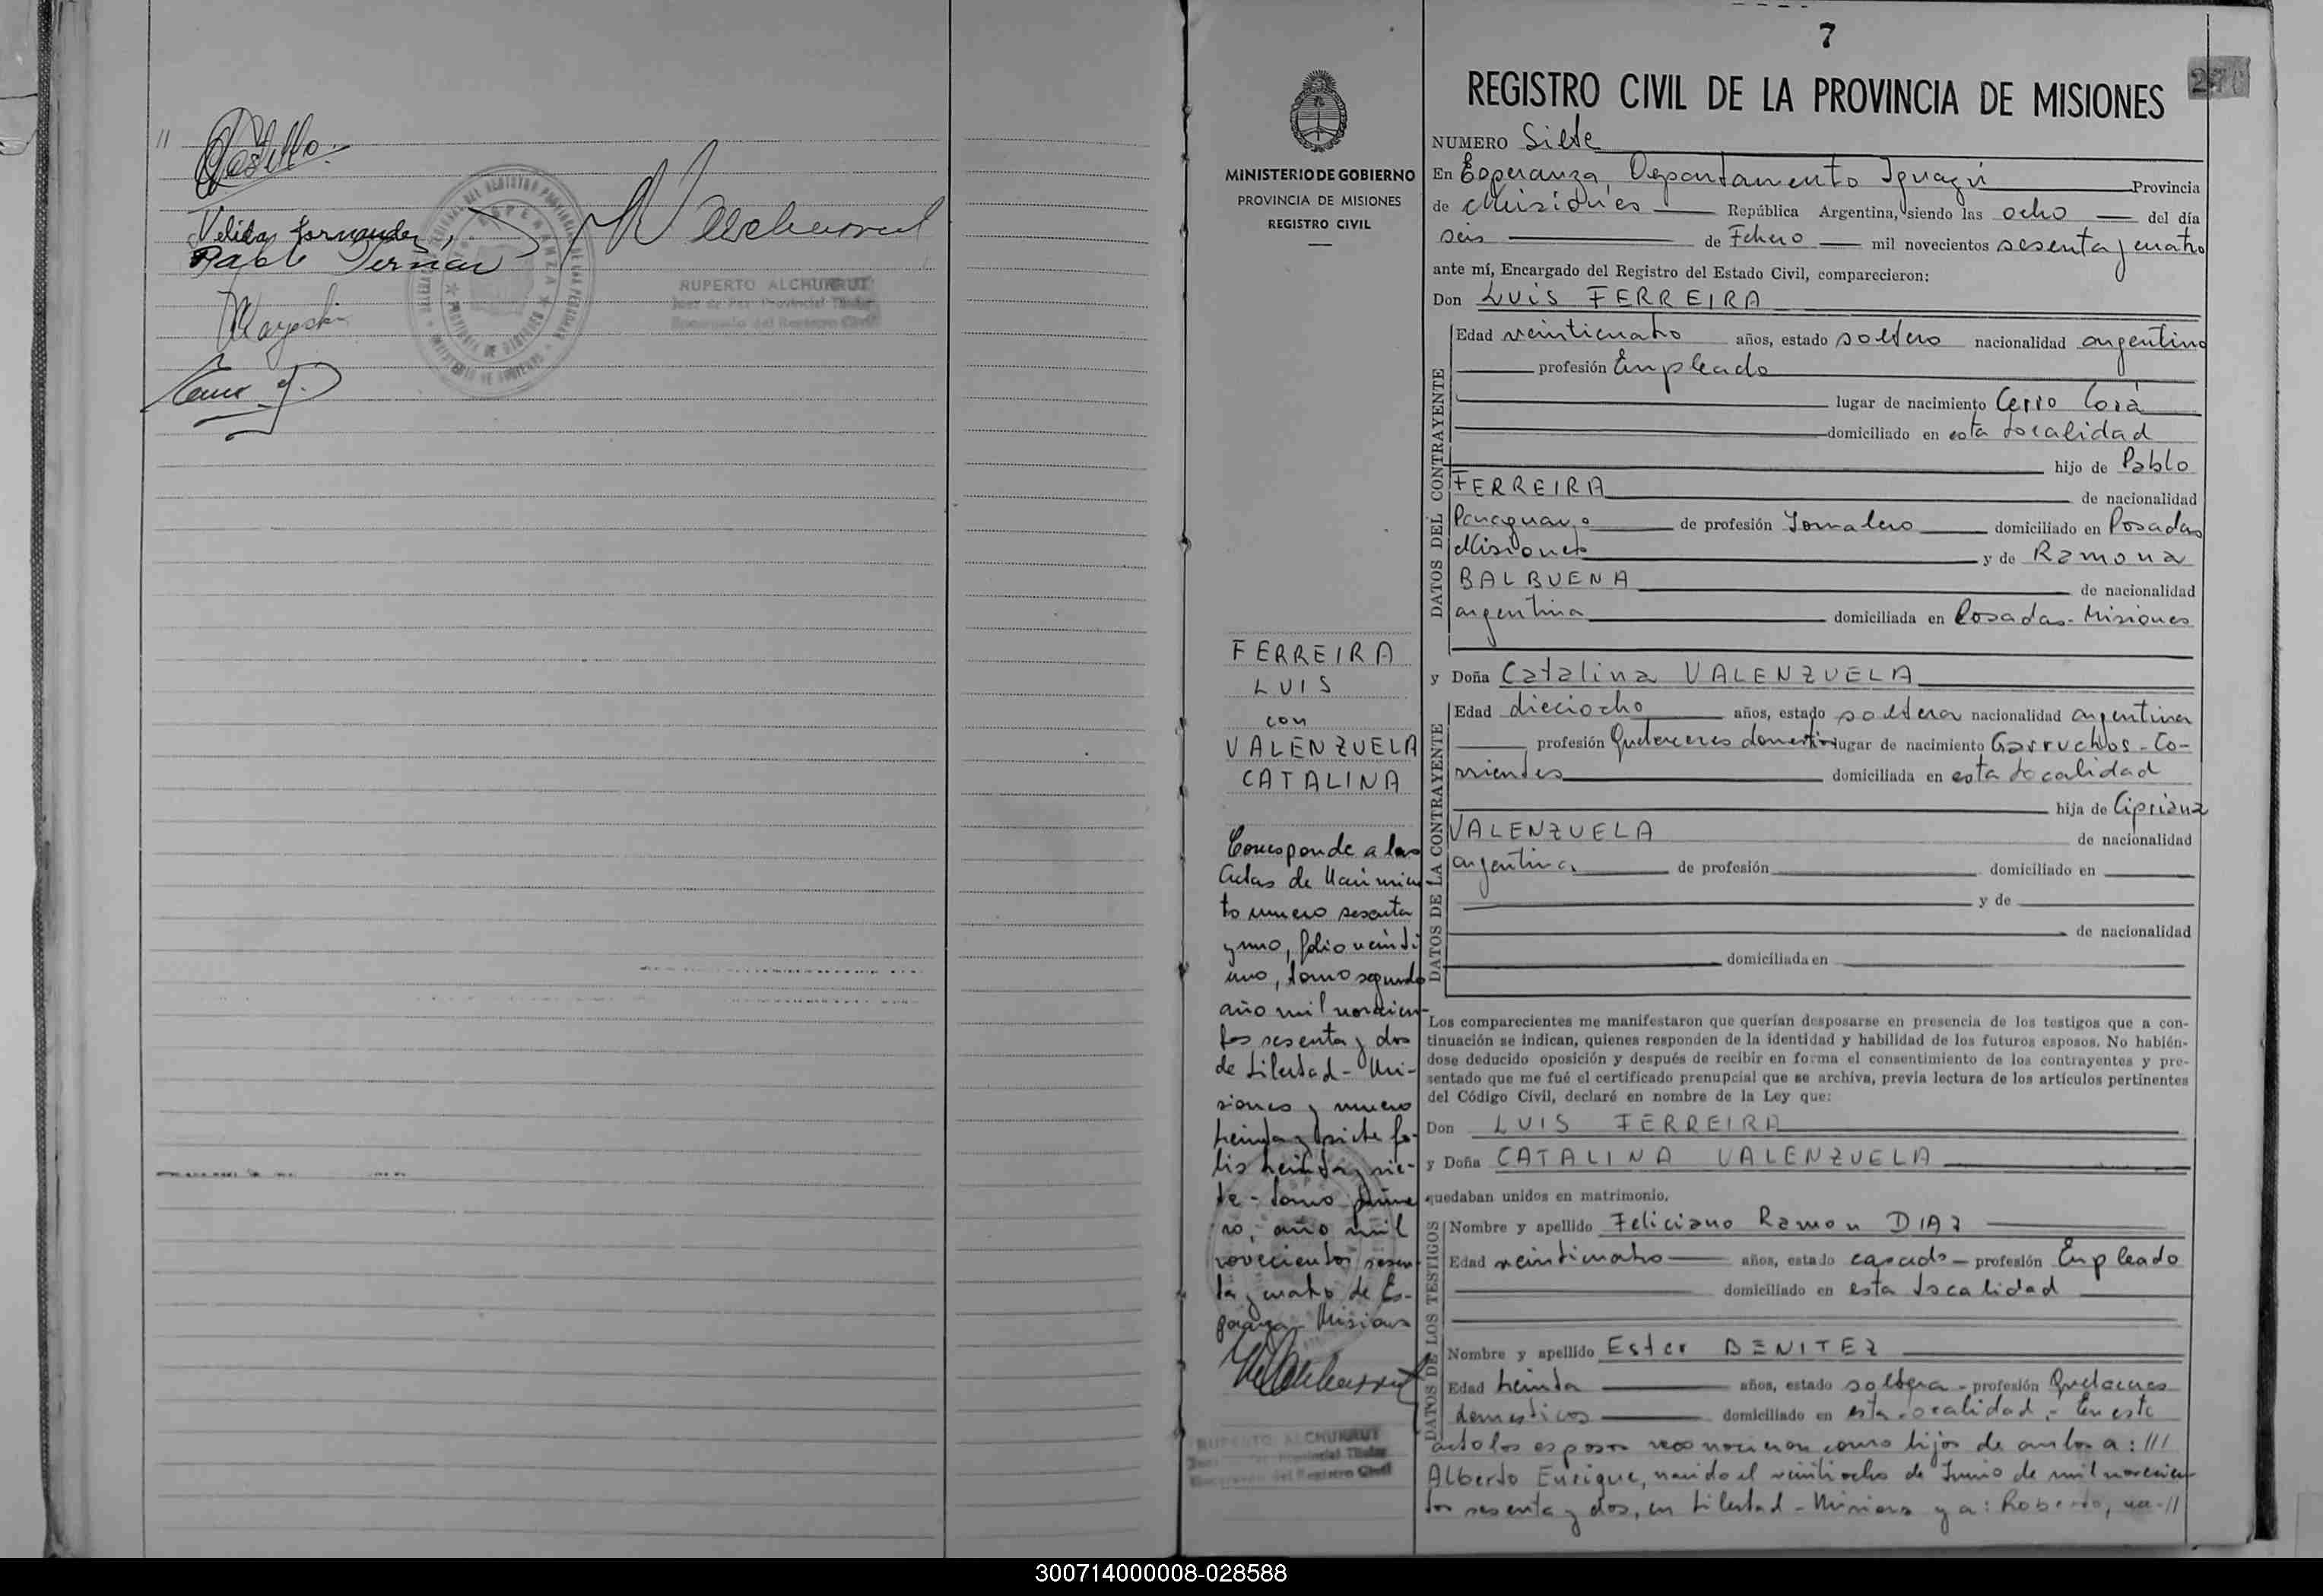 //
Castillo
Velida Fernandez,
Pablo
RUPERTO ALCHURRUT
Juez de Paz Provincial Titular
Encargado del Registro Civil
7
270
REGISTRO CIVIL DE LA PROVINCIA DE MISIONES
MINISTERIO DE GOBIERNO
PROVINCIA DE MISIONES
REGISTRO CIVIL
NUMERO Siete
En Esperanza, Departamento Iguazú Provincia
de Misiones República Argentina, siendo las ocho del día
seis de Febrero mil novecientos sesenta y cuatro
ante mí, Encargado del Registro del Estado Civil, comparecieron:
Don LUIS FERREIRA
DATOS DEL CONTRAYENTE
Edad veinticuatro años, estado soltero nacionalidad argentino
profesión Empleado
lugar de nacimiento Cerro Corá
domiciliado en esta localidad
hijo de Pablo
FERREIRA de nacionalidad
Paraguayo de profesión Jornalero domiciliado en Posadas
Misiones y de Ramona
BALBUENA de nacionalidad
argentina domiciliada en Posadas-Misiones
y Doña Catalina VALENZUELA
DATOS DE LA CONTRAYENTE
Edad dieciocho años, estado soltera nacionalidad argentina
profesión Quehaceres domesticos lugar de nacimiento Garruchos-Co-
rrientes domiciliada en esta localidad
hija de Cipriana
VALENZUELA de nacionalidad
argentina de profesión domiciliado en
y de
de nacionalidad
domiciliada en
Los comparecientes me manifestaron que querían desposarse en presencia de los testigos que a con-
tinuación se indican, quienes responden de la identidad y habilidad de los futuros esposos. No habién-
dose deducido oposición y después de recibir en forma el consentimiento de los contrayentes y pre-
sentado que me fué el certificado prenupcial que se archiva, previa lectura de los artículos pertinentes
del Código Civil, declaré en nombre de la Ley que:
Don LUIS FERREIRA
y Doña CATALINA VALENZUELA
quedaban unidos en matrimonio.
DATOS DE LOS TESTIGOS
Nombre y apellido Feliciano Ramon DIAZ
Edad veinticuatro años, estado casado - profesión Empleado
domiciliado en esta localidad
Nombre y apellido Ester BENITEZ
Edad treinta años, estado soltera - profesión Quehaceres
domesticos domiciliado en esta localidad.- En este
acto los esposos reconocieron como hijos de ambos a: ///
Alberto Enrique, nacido el veintiocho de Junio de mil novecien-
tos sesenta y dos, en Libertad-Misiones y a: Roberto, na-//
FERREIRA
LUIS
con
VALENZUELA
CATALINA
Corresponde a las
Actas de Nacimien-
to numero sesenta
y uno, folio veinti
uno, tomo segundo
año mil novecien-
tos sesenta y dos
de Libertad-Mi-
siones y numero
treinta y siete fo-
lio treinta y sie-
te - tomo prime
ro, año mil
novecientos sesen
ta y cuatro de Es-
peranza-Misiones
RUPERTO ALCHURRUT
Juez de Paz Provincial Titular
Encargado del Registro Civil
300714000008-028588